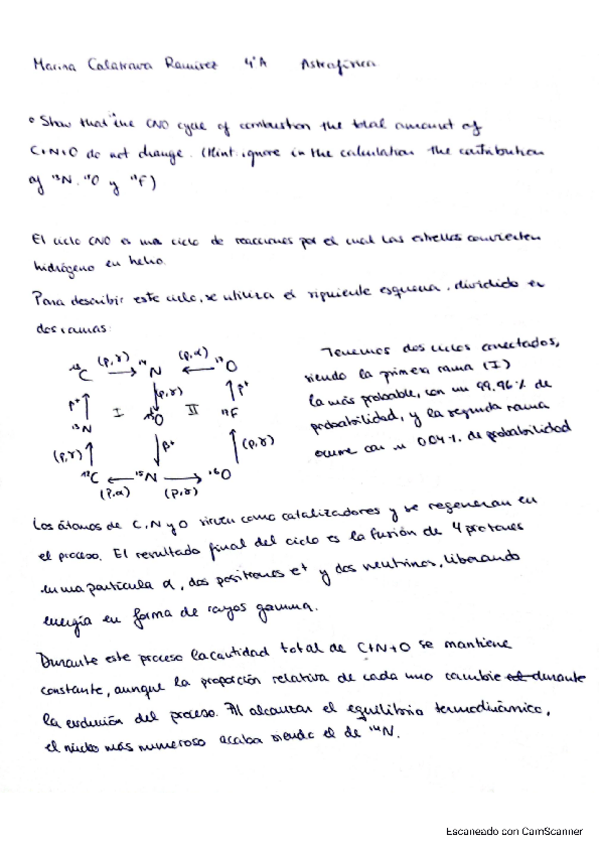 Marina Calatrava Ramírez 4ºA Astrofísica
• Show that the CNO cycle of combustion the total amount of
C+N+O do not change. (Hint: ignore in the calculation the contribution
of ¹³N, ¹⁵O y ¹⁷F)
El ciclo CNO es un ciclo de reacciones por el cual las estrellas convierten
hidrógeno en helio.
Para describir este ciclo, se utiliza el siguiente esquema, dividido en
dos ramas:
¹³C (p,γ) → ¹⁴N ← (p,α) ¹⁷O
β⁺ ↑ I ↓ (p,γ) II ↑ β⁺
¹³N ¹⁵O ¹⁷F
(p,γ) ↑ ↓ β⁺ ↑ (p,γ)
¹²C ← ¹⁵N → ¹⁶O
(p,α) (p,γ)
Tenemos dos ciclos conectados,
siendo la primera rama (I)
la más probable, con un 99.96% de
probabilidad, y la segunda rama
ocurre con un 0.04% de probabilidad
Los átomos de C, N y O sirven como catalizadores y se regeneran en
el proceso. El resultado final del ciclo es la fusión de 4 protones
en una partícula α, dos positrones e⁺ y dos neutrinos, liberando
energía en forma de rayos gamma.
Durante este proceso la cantidad total de C+N+O se mantiene
constante, aunque la proporción relativa de cada uno cambie durante
la evolución del proceso. Al alcanzar el equilibrio termodinámico,
el núcleo más numeroso acaba siendo el de ¹⁴N.
Escaneado con CamScanner